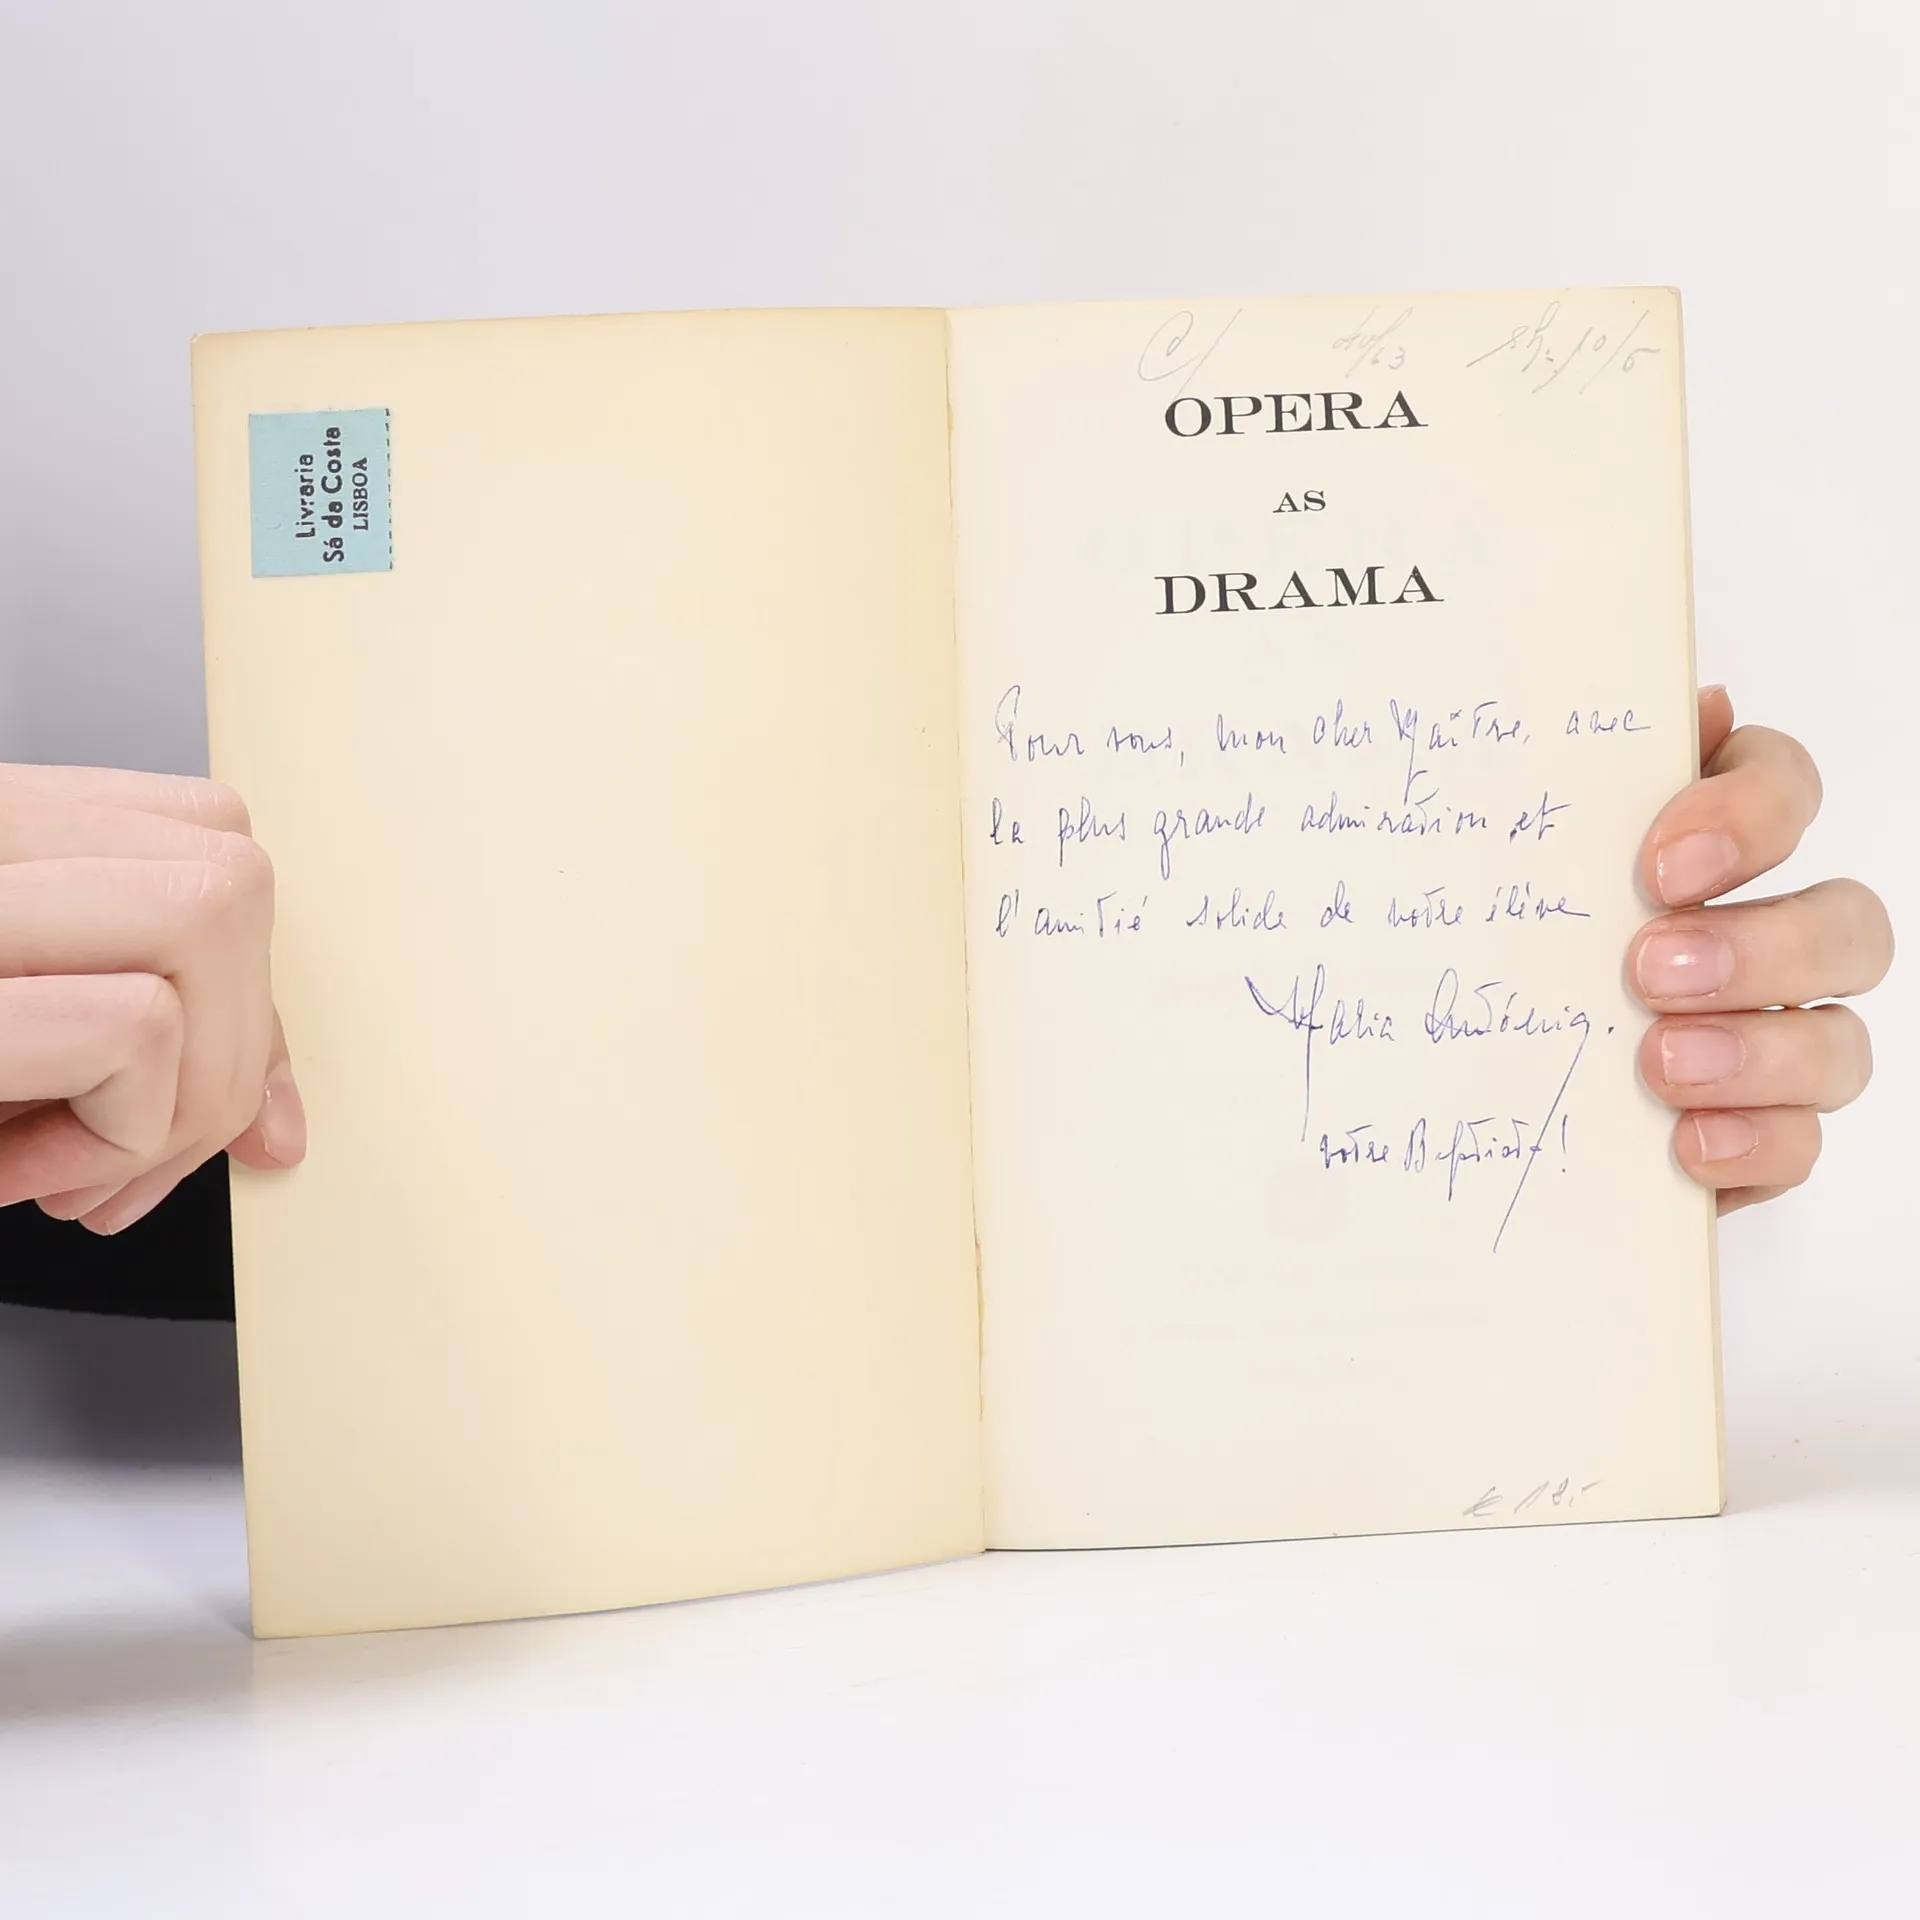 Livraria
Sá da Costa
LISBOA
sh. 10/6
OPERA
AS
DRAMA
Pour vous, mon cher Maître, avec
la plus grande admiration et
l'amitié solide de votre élève
Maria Antónia.
votre !